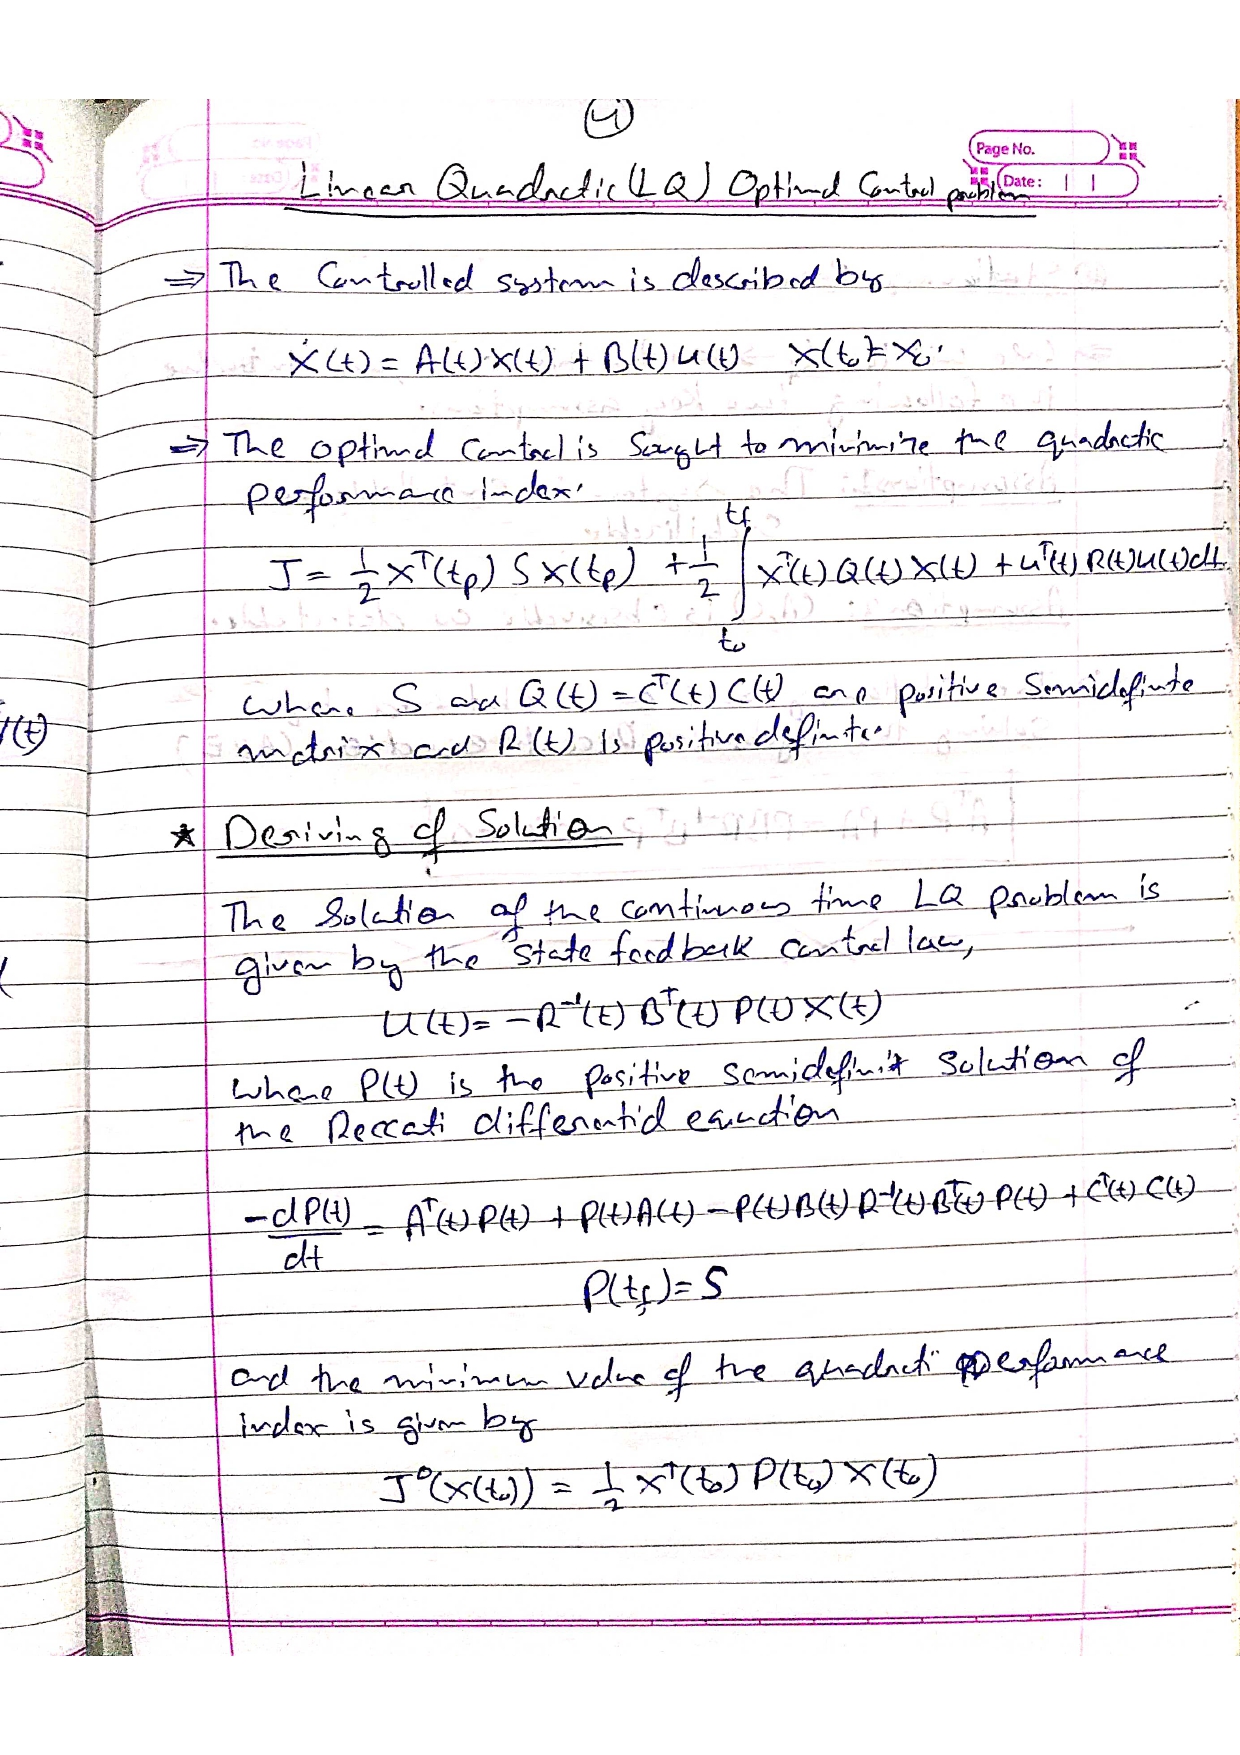 4
Page No.
Linear Quadractic (LQ) Optimal Control problem
Date:
⇒ The Controlled system is described by
Ẋ(t) = A(t)X(t) + B(t)u(t) X(t₀) = X₀.
⇒ The optimal Control is Sought to minimize the quadractic
performance index.
J = 1/2 Xᵀ(tp) S X(tp) + 1/2 ∫_{t₀}^{tf} Xᵀ(t) Q(t) X(t) + uᵀ(t) R(t) u(t) dt.
where S and Q(t) = Cᵀ(t) C(t) are positive Semidefinite
(t)
matrix and R(t) is positive definite.
* Deriving of Solution
The Solution of the continuous time LQ problem is
given by the state feedback control law,
U(t) = -R⁻¹(t) Bᵀ(t) P(t) X(t)
where P(t) is the positive semidefinit Solution of
the Reccati differential equation
-dP(t)/dt = Aᵀ(t) P(t) + P(t) A(t) - P(t) B(t) R⁻¹(t) Bᵀ(t) P(t) + Cᵀ(t) C(t)
P(tf) = S
and the minimum value of the quadracti performance
index is given by
J⁰(X(t₀)) = 1/2 Xᵀ(t₀) P(t₀) X(t₀)